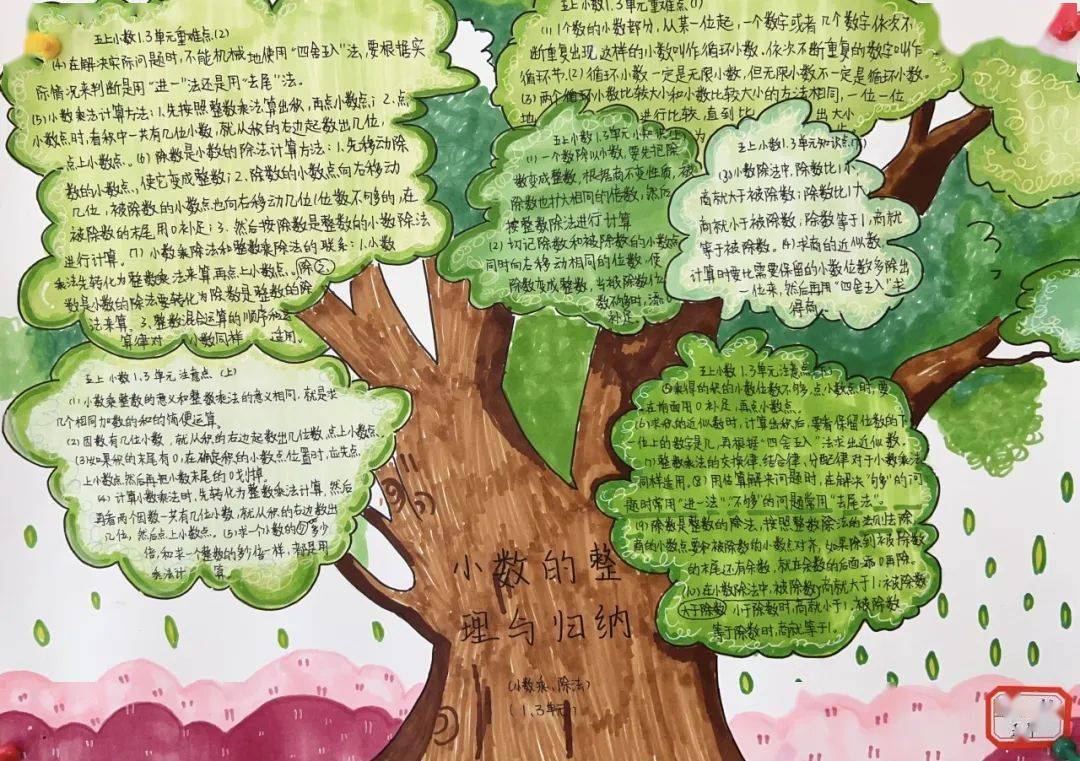 五上小数1.3单元重难点(2)
(4)在解决实际问题时,不能机械地使用“四舍五入”法,要根据实
际情况来判断是用“进一”法还是用“去尾”法。
(5)小数乘法计算方法:1.先按照整数乘法算出积,再点小数点;2.点
小数点时,看积中一共有几位小数,就从积的右边起数出几位,
点上小数点。(6)除数是小数的除法计算方法:1.先移动除
数的小数点,使它变成整数;2.除数的小数点向右移动
几位,被除数的小数点也向右移动几位(位数不够的,在
被除数的末尾用0补足;3.然后按除数是整数的小数除法
进行计算。(7)小数乘除法和整数乘除法的联系:1.小数
乘法先转化为整数乘法来算再点上小数点。除②
数是小数的除法要转化为除数是整数的除
法来算。3.整数混合运算的顺序和运
算律对 小数同样 适用。
五上小数1.3单元重难点(1)
(1)1个数的小数部分,从某一位起,一个数字或者几个数字依次不
断重复出现,这样的小数叫作循环小数。依次不断重复的数字叫作
循环节,(2)循环小数一定是无限小数,但无限小数不一定是循环小数。
(3)两个循环小数比较大小和小数比较大小的方法相同,一位一位
地 进行比较,直到比 出大小
为
五上小数1.3单元小知识
(1)一个数除以小数,要先记除
数变成整数,根据商不变性质,被
除数也扩大相同的倍数,然后
按整数除法进行计算
(2)切记除数和被除数的小数点
同时向右移动相同的位数,使
除数变成整数,当被除数位
数不够时,添0
补足
五上小数1.3单元知识点
(3)小数除法中,除数比1小,
商就大于被除数;除数比1大,
商就小于被除数,除数等于1,商就
等于被除数。(4)求商的近似数,
计算时要比需要保留的小数位数多除出
一位来,然后再用“四舍五入”求
得商。
五上小数1.3单元注意点(上)
(1)小数乘整数的意义和整数乘法的意义相同,就是求
几个相同加数的和的简便运算。
(2)因数有几位小数,就从积的右边起数出几位数,点上小数点。
(3)如果积的末尾有0,在确定积的小数点位置时,应先点
上小数点,然后再把小数末尾的0划掉。
(4)计算小数乘法时,先转化为整数乘法计算,然后
再看两个因数一共有几位小数,就从积的右边数出
几位,然后点上小数点。(5)求一个小数的几多少
倍,和求一个整数的多少倍一样,都是用
乘法计 算
五上小数1.3单元注意点
⑤乘得的积的小数位数不够,点小数点时,要
在前面用0补足,再点小数点。
(6)求积的近似数时,计算出积后,要看保留位数的下
一位上的数字是几,再根据“四舍五入”法求出近似数。
(7)整数乘法的交换律,结合律,分配律对于小数乘法
同样适用。(8)用估算解决问题时,在解决“够”的问
题时常用“进一法”,“不够”的问题常用“去尾法”。
(9)除数是整数的除法,按照整数除法的法则去除,
商的小数点要和被除数的小数点对齐,如果除到被除数
的末尾还有余数,就在余数的后面添0再除。
(10)在小数除法中,被除数,商就大于1;被除数
大于除数 小于除数时,商就小于1,被除数
等于除数时,商就等于1。
小数的整
理与归纳
(小数乘,除法)
(1,3单元)